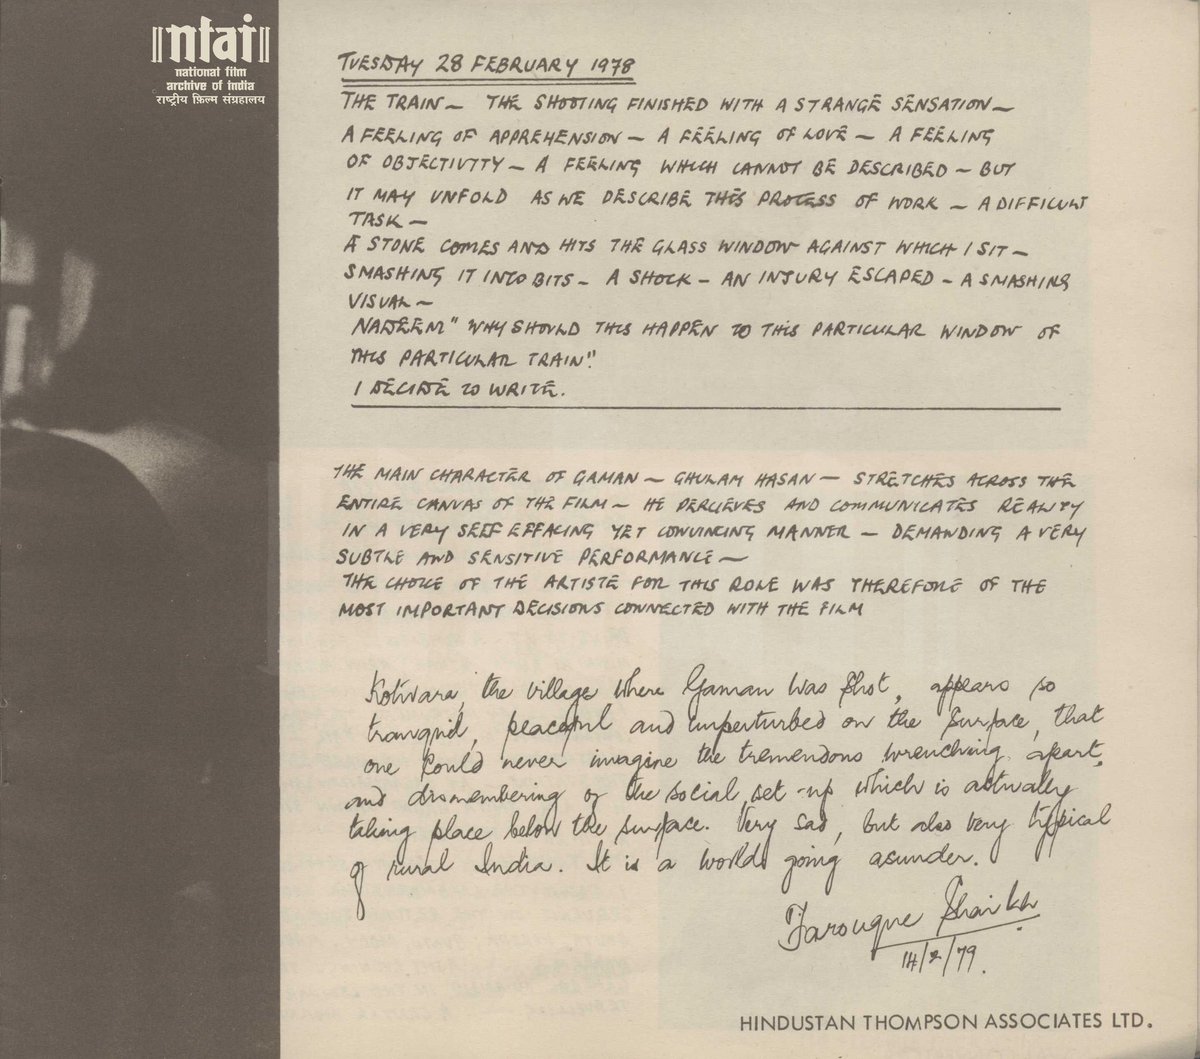 ntai
national film
archive of india
राष्ट्रीय फ़िल्म संग्रहालय
TUESDAY 28 FEBRUARY 1978
THE TRAIN — THE SHOOTING FINISHED WITH A STRANGE SENSATION —
A FEELING OF APPREHENSION — A FEELING OF LOVE — A FEELING
OF OBJECTIVITY — A FEELING WHICH CANNOT BE DESCRIBED — BUT
IT MAY UNFOLD AS WE DESCRIBE THIS PROCESS OF WORK — A DIFFICULT
TASK —
A STONE COMES AND HITS THE GLASS WINDOW AGAINST WHICH I SIT —
SMASHING IT INTO BITS — A SHOCK — AN INJURY ESCAPED — A SMASHING
VISUAL —
NADEEM " WHY SHOULD THIS HAPPEN TO THIS PARTICULAR WINDOW OF
THIS PARTICULAR TRAIN".
I DECIDE TO WRITE.
THE MAIN CHARACTER OF GAMAN — GHULAM HASAN — STRETCHES ACROSS THE
ENTIRE CANVAS OF THE FILM — HE PERCIEVES AND COMMUNICATES REALITY
IN A VERY SELF EFFACING YET CONVINCING MANNER — DEMANDING A VERY
SUBTLE AND SENSITIVE PERFORMANCE —
THE CHOICE OF THE ARTISTE FOR THIS ROLE WAS THEREFORE OF THE
MOST IMPORTANT DECISIONS CONNECTED WITH THE FILM
Kotwara, the village where Gaman was shot, appears so
tranquil, peaceful and unperturbed on the surface, that
one could never imagine the tremendous wrenching apart,
and dismembering of the social set-up which is actually
taking place below the surface. Very sad, but also very typical
of rural India. It is a world going asunder.
Farouque Shaikh
14/2/79.
HINDUSTAN THOMPSON ASSOCIATES LTD.